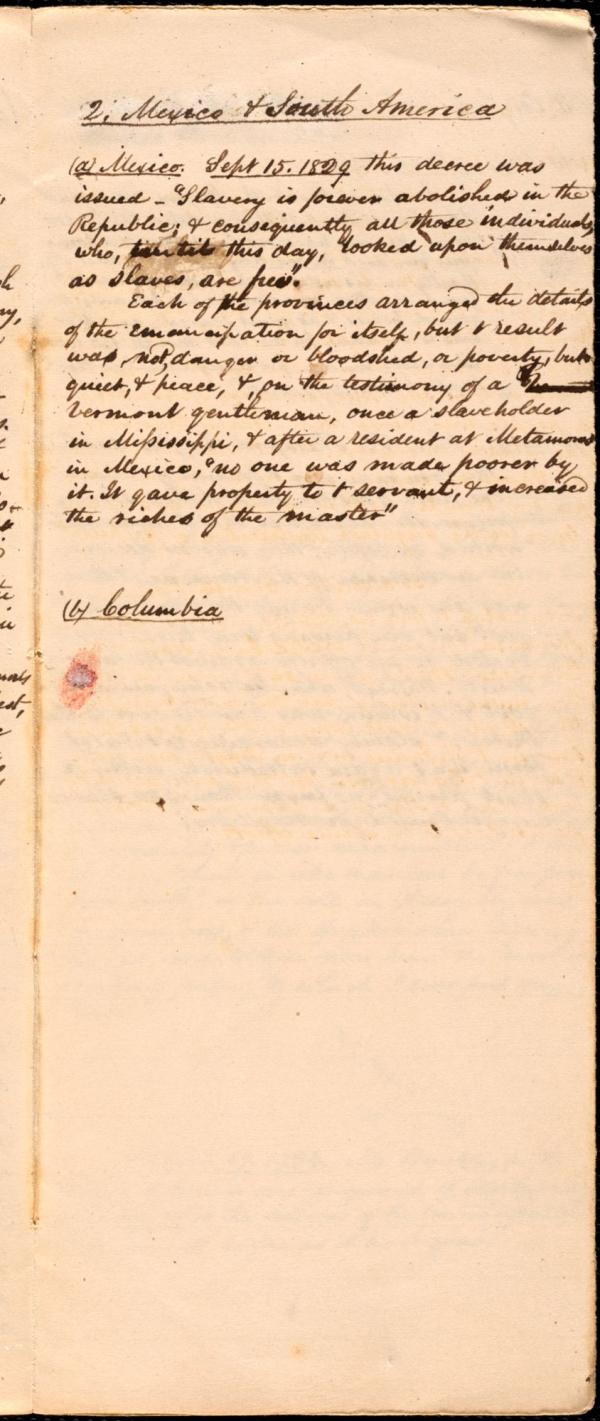 2. Mexico & South America
(a) Mexico. Sept 15. 1829 this decree was
issued - "Slavery is forever abolished in the
Republic; & consequently all those individuals
who, until this day, looked upon themselves
as slaves, are free".
Each of the provinces arranged the details
of the emancipation for itself, but t result
was, not danger or bloodshed, or poverty, but
quiet, & peace, &, on the testimony of a
Vermont gentleman, once a slaveholder
in Mississippi, & after a resident at Metamoras
in Mexico, "no one was made poorer by
it. It gave property to t servant, & increased
the riches of the master"
(b) Columbia